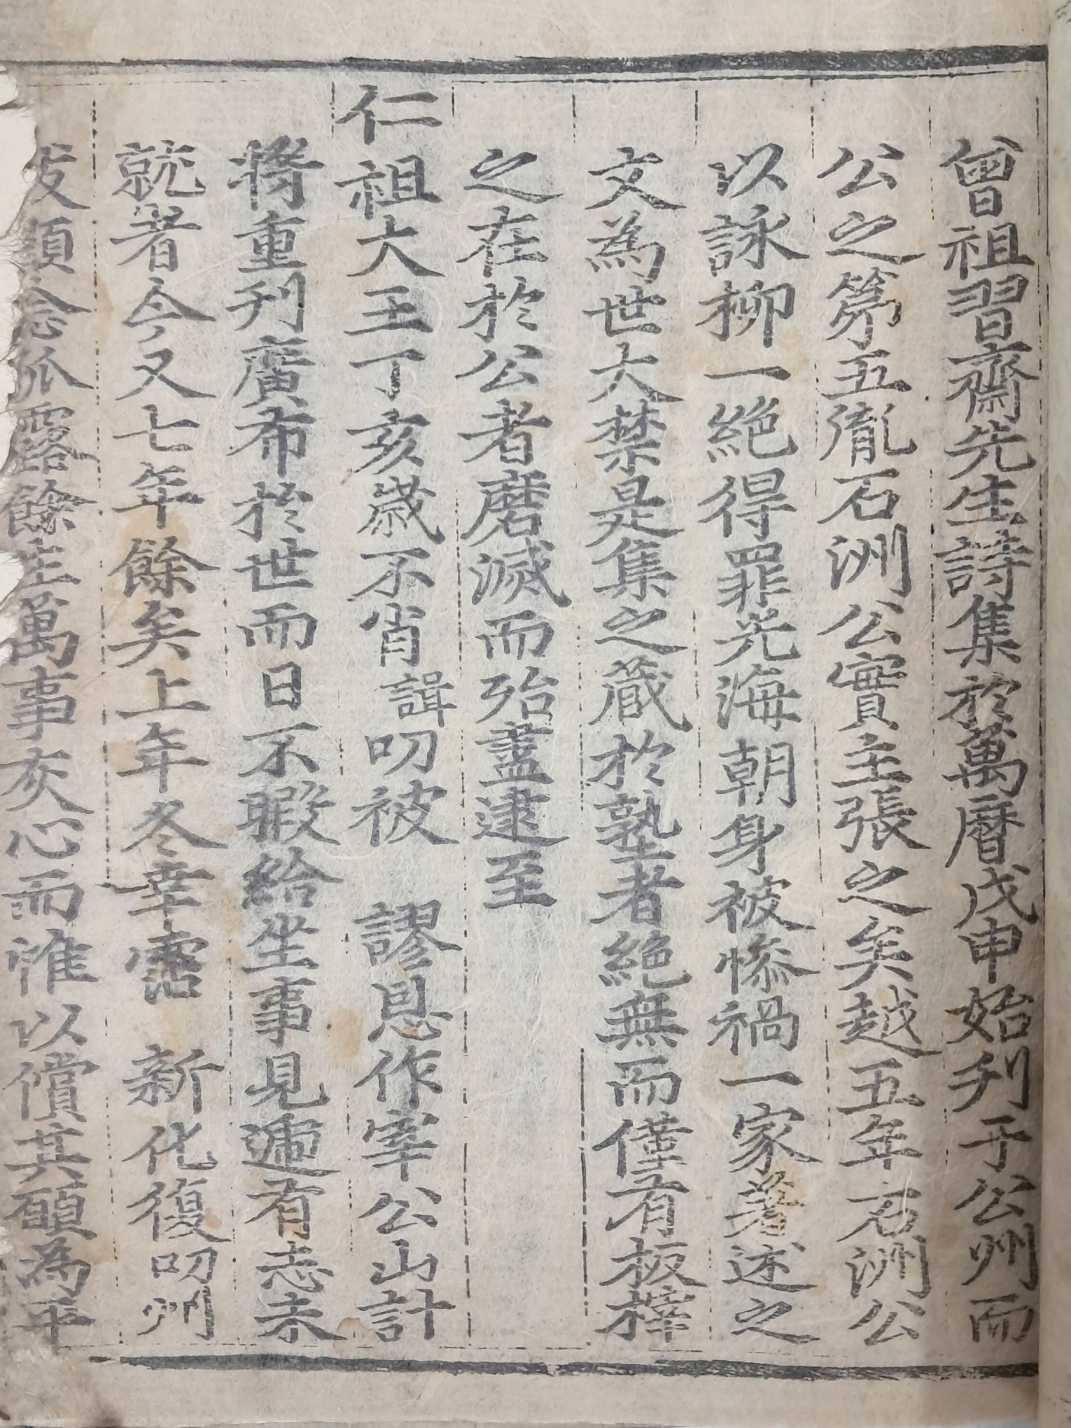 曾祖習齋先生詩集於萬曆戊申始刋于公州而
公之第五胤石洲公實主張之矣越五年石洲公
以詠柳一絶得罪光海朝身被慘禍一家著述之
文為世大禁是集之蔵於塾者絶無而僅有板梓
之在於公者磨滅而殆盡逮至
仁祖大王丁亥歲不肖諿叨被 謬恩作宰公山計
將重刋廣布於世而日不暇給坐事見逓有志未
就者今又七年餘矣上年冬幸霑 新化復叨州
紱顧念孤露餘生萬事灰心而惟以償其願為平